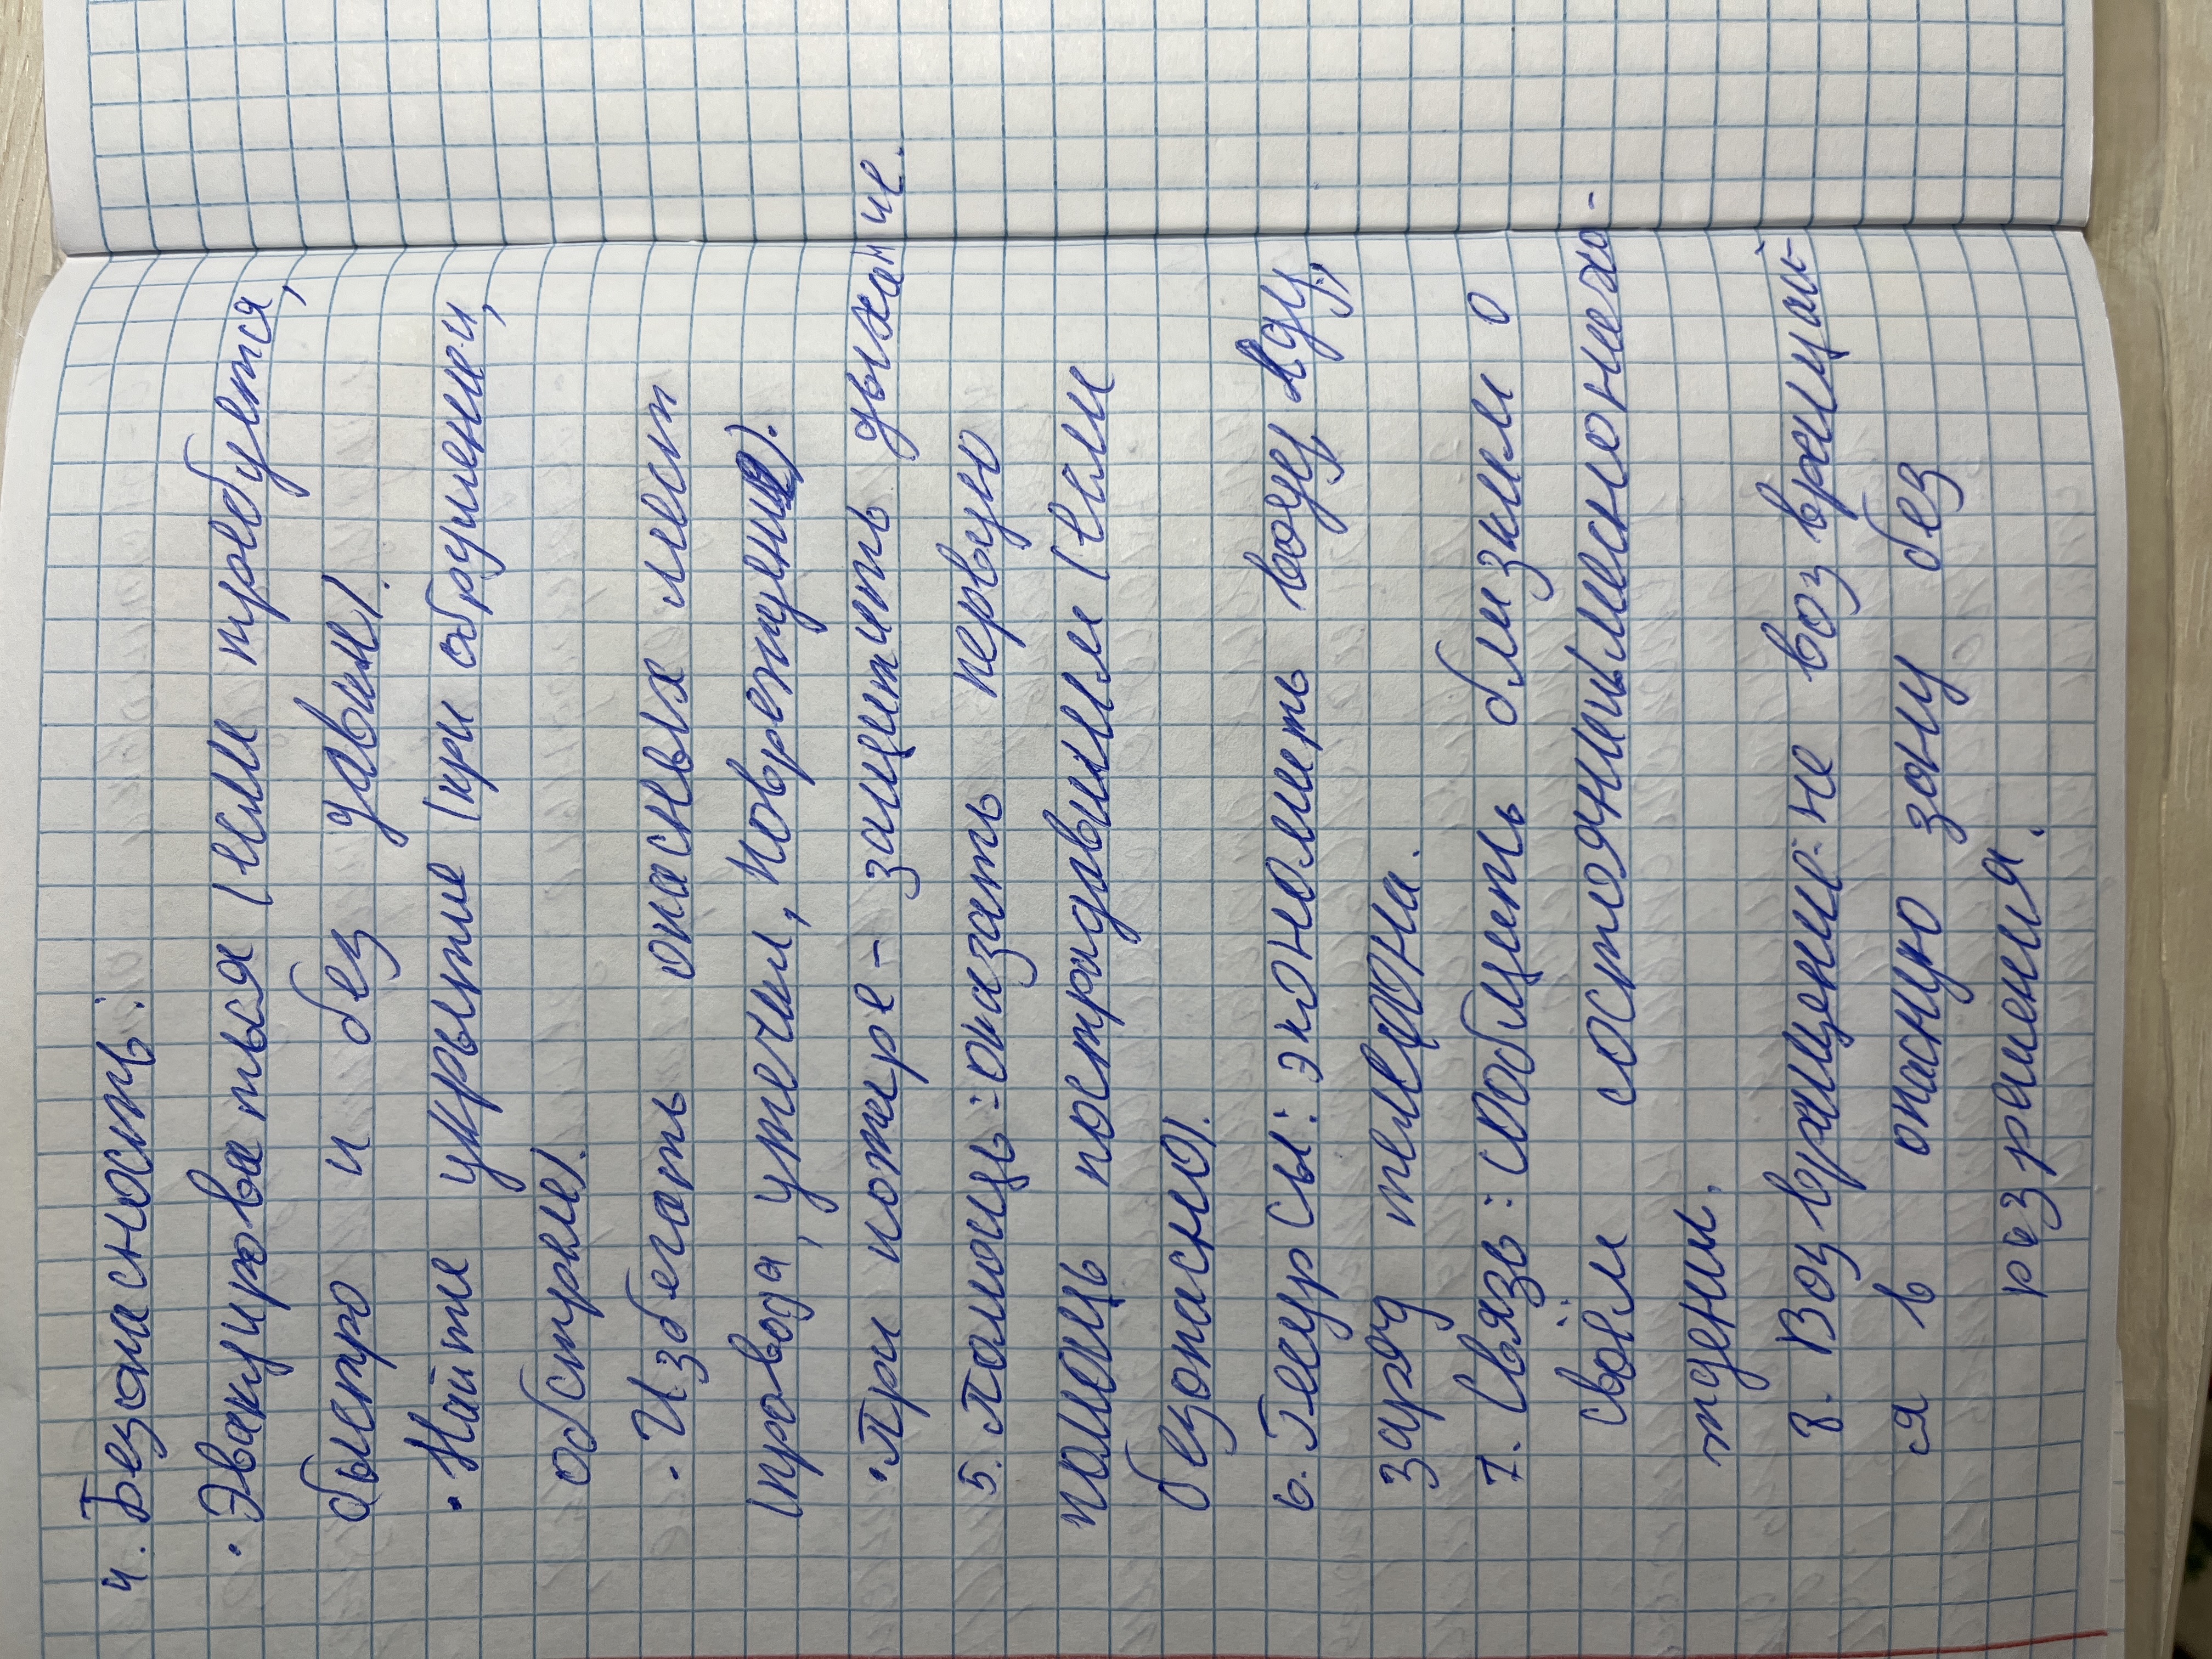 4. Безопасность:
· Эвакуироваться (если требуется,
быстро и без давки).
· Найти укрытие (при обрушении,
обстреле).
· Избегать опасных мест
(провода, утечки, повреждение).
· При пожаре - защитить дыхание.
5. Помощь: оказать первую
помощь пострадавшим (если
безопасно).
6. Ресурсы: экономить воду, еду,
заряд телефона.
7. Связь: сообщить близким о
своём состоянии и местонахо-
ждении.
8. Возвращение: не возвращай-
ся в опасную зону без
разрешения.